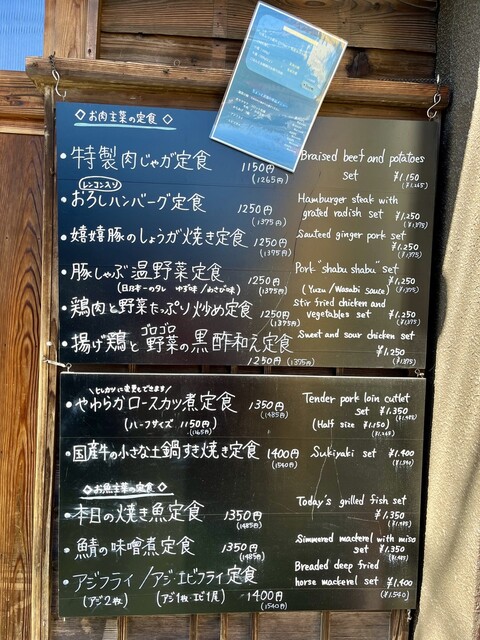 ◇お肉主菜の定食◇
・特製肉じゃが定食 1150円 (1265円) Braised beef and potatoes set ¥1,150 (¥1,265)
レンコン入り
・おろしハンバーグ定食 1250円 (1375円) Hamburger steak with grated radish set ¥1,250 (¥1,375)
・嬉嬉豚のしょうが焼き定食 1250円 (1375円) Sauteed ginger pork set ¥1,250 (¥1,375)
・豚しゃぶ温野菜定食 1250円 (1375円) Pork "shabu shabu" set ¥1,250 (¥1,375)
(日本一のタレ ゆず味/わさび味) (Yuzu/Wasabi sauce)
・鶏肉と野菜たっぷり炒め定食 1250円 (1375円) Stir fried chicken and vegetables set ¥1,250 (¥1,375)
ゴロゴロ
・揚げ鶏と野菜の黒酢和え定食 1250円 (1375円) Sweet and sour chicken set ¥1,250 (¥1,375)
\ヒレカツに変更もできます/
・やわらかロースカツ煮定食 1350円 (1485円) Tender pork loin cutlet set ¥1,350 (¥1,485)
(ハーフサイズ 1150円) (1265円) (Half size ¥1,150) (¥1,265)
・国産牛の小さな土鍋すき焼き定食 1400円 (1540円) Sukiyaki set ¥1,400 (¥1,540)
◇お魚主菜の定食◇
・本日の焼き魚定食 1350円 (1485円) Today's grilled fish set ¥1,350 (¥1,485)
・鯖の味噌煮定食 1350円 (1485円) Simmered mackerel with miso set ¥1,350 (¥1,485)
・アジフライ/アジ・エビフライ定食 1400円 (1540円) Breaded deep fried horse mackerel set ¥1,400 (¥1,540)
(アジ2枚) (アジ1枚・エビ1尾)